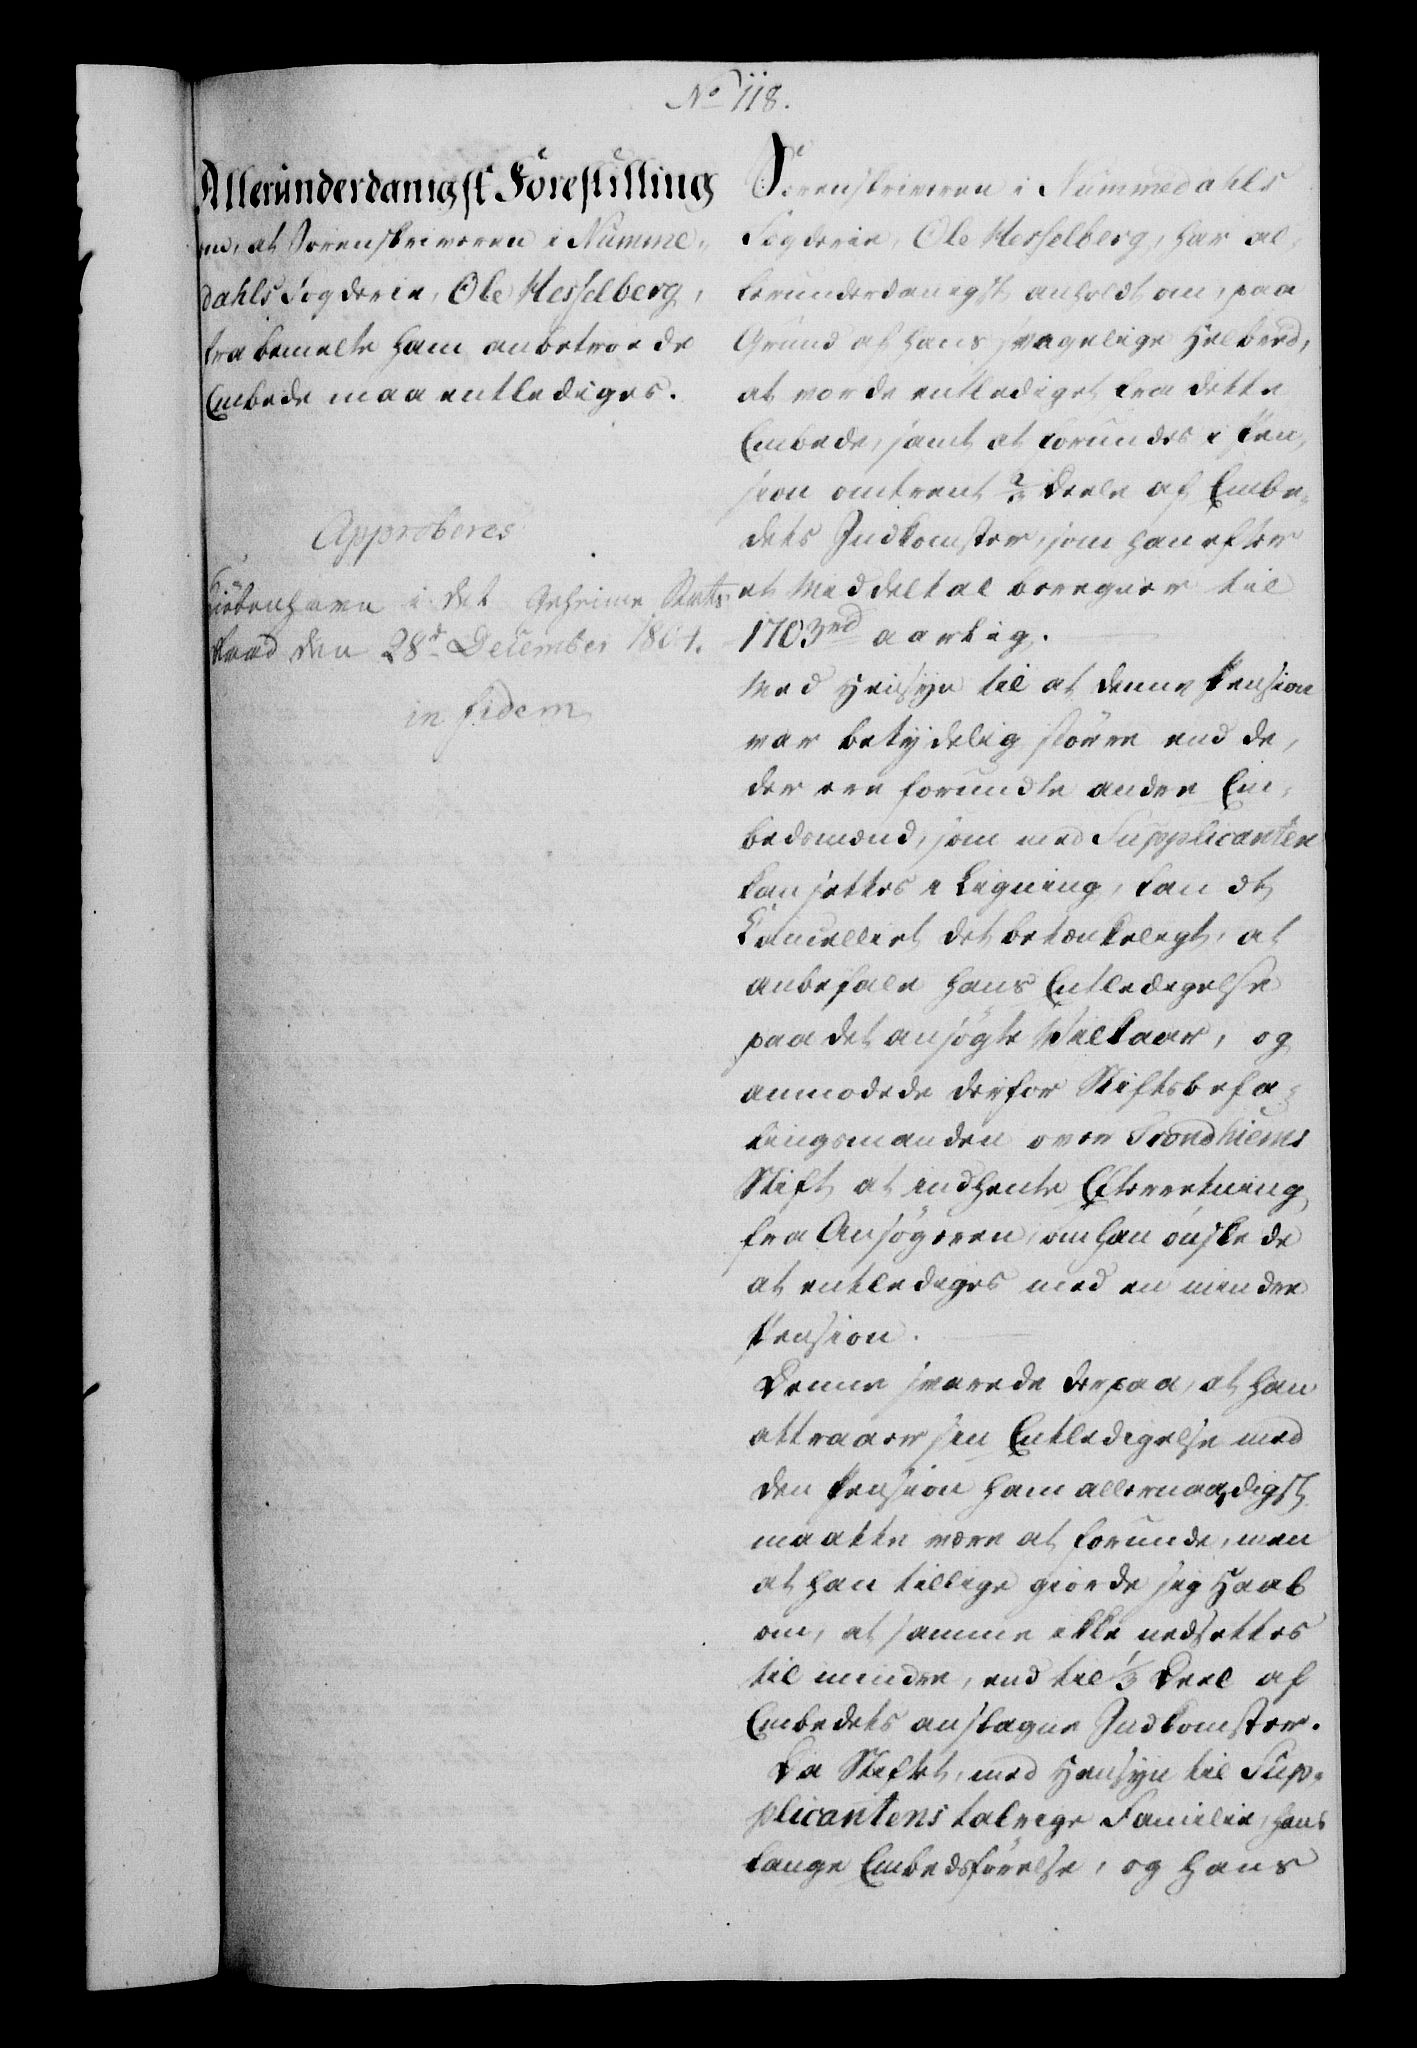 No 118.
Allerunderdanigst Forestilling
om, at Sorenskriveren i Numme-
dahls Fogderie, Ole Hesselberg,
fra bemelte ham anbetroede
Embede maa entlediges.
Approberes
Kiöbenhavn i det Geheime Stats
Raad den 28d December 1801.
in fidem
Sorenskriveren i Nummedahls
Fogderie, Ole Hesselberg, har al-
lerunderdanigst anholdt om, paa
Grund af hans svagelige Helbred,
at vorde entlediget fra dette
Embede, samt at forundes i Pen-
sion omtrent 2/3 Deele af Embe-
dets Indkomster, som han efter
et Middeltal beregner til
1703 rd aarlig.
Med Hensyn til at denne Pension
var betydelig större end de,
der ere forundte andre Em-
bedsmænd, som med Supplicanten
kan settes i Ligning, fandt
Cancelliet det betænkeligt, at
anbefale hans Entledigelse
paa det ansögte Vilkaar, og
anmodede derfor Stiftsbefa-
lingsmanden over Trondhiems
Stift at indhente Efterretning
fra Ansögeren, om han önskede
at entlediges med en mindre
Pension.
Denne svarede derpaa, at han
attraaer sin Entledigelse med
den Pension ham allernaadigst
maatte være at forunde, men
at han tillige giorde sig Haab
om, at samme ikke nedsettes
til mindre, end til 1/3 Deel af
Embedets anslagne Indkomster.
Da Stiftet, med Hensyn til Sup-
plicantens talrige Familie, hans
lange Embedsförelse, og hans